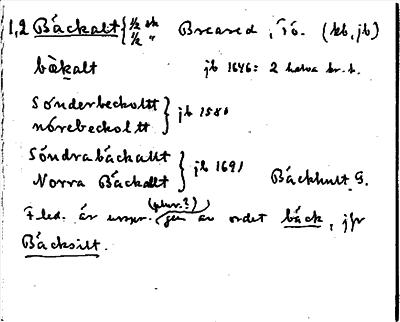 1,2 Bäckalt {½ sk ½ " Breared, Tö. (kb, jb)
bækalt jb 1646: 2 halva kr. h.
Sönderbeckoltt
nörebeckoltt } jb 1580
Söndrabäckallt
Norra Bäckallt } jb 1691
Bäckhult G.
F. led. är urspr. (plur.?) gen av ordet bäck, jfr
Bäcksilt.